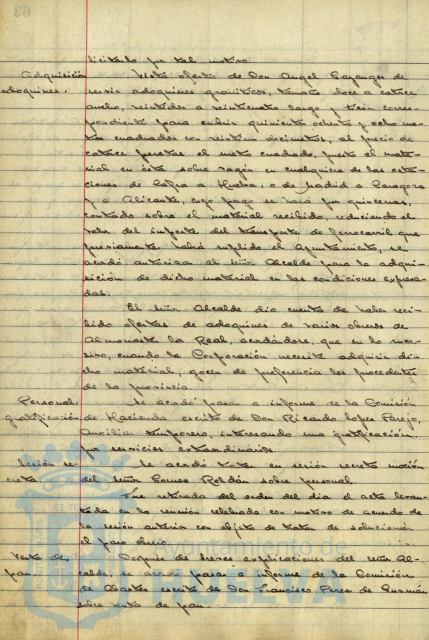 licitarlo por tal motivo.
Adquisición Vista oferta de Don Angel Gayangos de
adoquines. seisis adoquines graníticos, tamaño doce a catorce
ancho, veintidos a veinticuatro largo y tizón corres-
pondiente para cubrir quinientos ochenta y ocho me-
tros cuadrados con veintiun decimetros, al precio de
catorce pesetas el metro cuadrado, puesto el mate-
rial en ésta sobre vagón en cualquiera de las esta-
ciones de Zafra a Huelva, o de Madrid a Zaragoza
y a Alicante, cuyo pago se hará por quincenas,
contado sobre el material recibido, reduciendo el
valor del importe del transporte de ferrocarril que
previamente habrá suplido el Ayuntamiento, se
acordó autorizar al Señor Alcalde para la adqui-
sición de dicho material en las condiciones expresa-
das.
El Señor Alcalde dió cuenta de haber reci-
bido ofertas de adoquines de varios obreros de
Almonaster la Real, acordándose, que en lo suce-
sivo, cuando la Corporación necesite adquirir di-
cho material, gocen de preferencia los procedentes
de la provincia.
Personal Se acordó pasar a informe de la Comisión
gratificación de Hacienda escrito de Don Ricardo López Parejo,
Auxiliar temporero, interesando una gratificación,
por servicios extraordinarios
Sesión se- Se acordó tratar en sesión secreta moción
creta. del Señor Gomez Roldán sobre personal.
Fue retirada del orden del dia el acta levan-
tada en la reunión celebrada con motivo de acuerdo de
la sesión anterior con objeto de tratar de solucionar
el paro obrero.
Venta de Despues de breves explicaciones del señor Al-
pan. calde, se acordó pasar a informe de la Comisión
de Abastos escrito de Don Francisco Perez de Guzmán
sobre venta de pan.
HUELVA